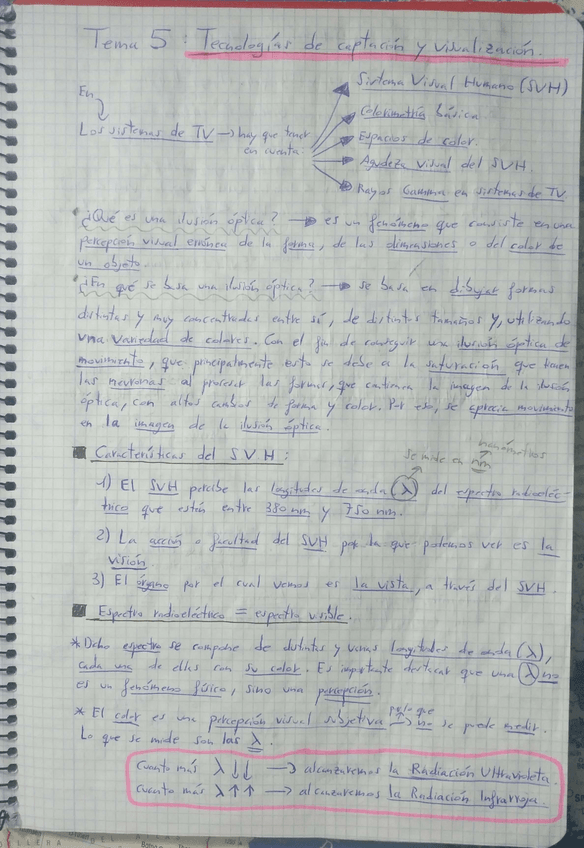 Tema 5: Tecnologías de captación y visualización.
Sistema Visual Humano (SVH)
En
Colorimetría básica.
Los sistemas de TV → hay que tener
en cuenta:
Espacios de color.
Agudeza visual del SVH.
Rayos Gamma en sistemas de TV.
¿Qué es una ilusión óptica? → es un fenómeno que consiste en una
percepción visual errónea de la forma, de las dimensiones o del color de
un objeto.
¿En qué se basa una ilusión óptica? → se basa en dibujar formas
distintas y muy concentradas entre sí, de distintos tamaños y, utilizando
una variedad de colores. Con el fin de conseguir una ilusión óptica de
movimiento, que principalmente esto se debe a la saturación que traen
las neuronas al procesar las formas, que contiene la imagen de la ilusión
óptica, con altos cambios de forma y color. Por eso, se aprecia movimiento
en la imagen de la ilusión óptica.
Características del SVH:
se mide en nm
nanómetros
1) El SVH percibe las longitudes de onda (λ) del espectro radioeléc-
trico que están entre 380 nm y 750 nm.
2) La acción o facultad del SVH por la que podemos ver es la
visión.
3) El órgano por el cual vemos es la vista, a través del SVH.
Espectro radioeléctrico = espectro visible.
* Dicho espectro se compone de distintas y varias longitudes de onda (λ),
cada una de ellas con su color. Es importante destacar que una λ no
es un fenómeno físico, sino una percepción.
* El color es una percepción visual subjetiva → no se puede medir.
por lo que
Lo que se mide son las λ.
Cuanto más λ ↓↓ → alcanzaremos la Radiación Ultravioleta.
Cuanto más λ ↑↑ → alcanzaremos la Radiación Infrarroja.